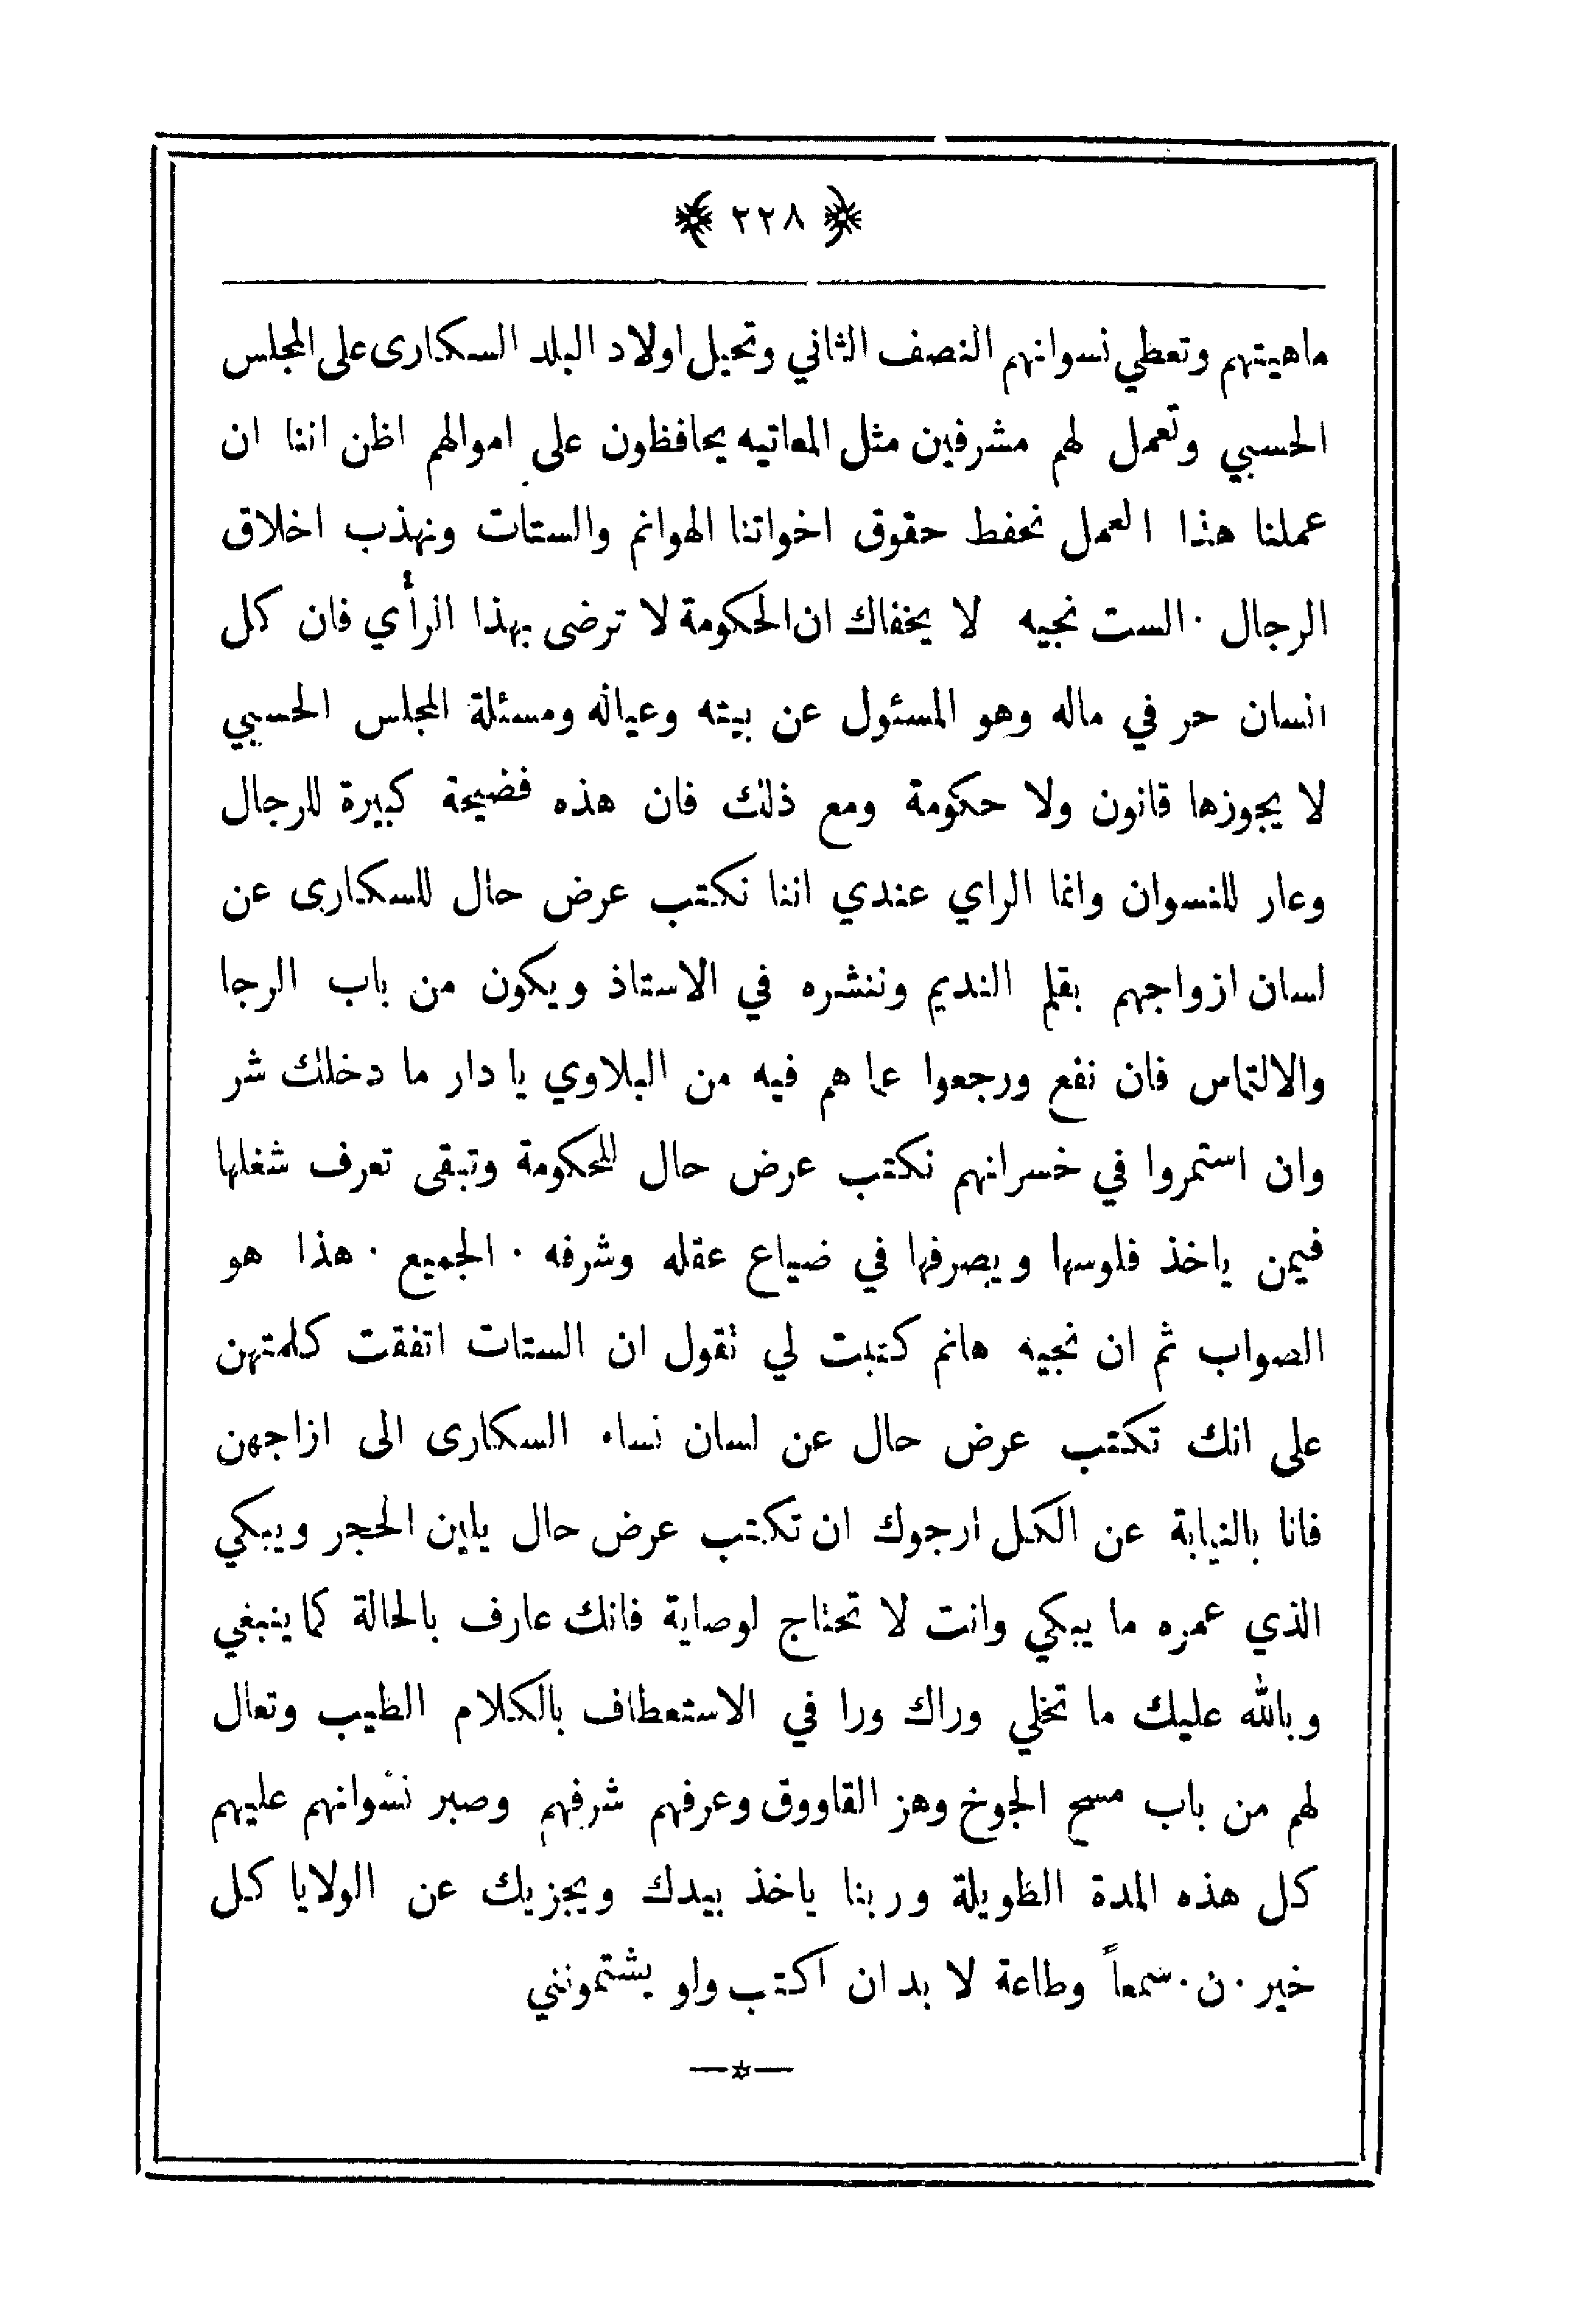 ٢٢٨
ماهيتهم وتعطي نسوانهم النصف الثاني وتحيل اولاد البلد السكارى على المجلس
الحسبي وتعمل لهم مشرفين مثل المعاتيه يحافظون على اموالهم اظن اننا ان
عملنا هذا العمل نحفظ حقوق اخواتنا الهوانم والستات ونهذب اخلاق
الرجال . الست نجيه لا يخفاك ان الحكومة لا ترضى بهذا الرأي فان كل
انسان حر في ماله وهو المسئول عن بيته وعياله ومسئلة المجلس الحسبي
لا يجوزها قانون ولا حكومة ومع ذلك فان هذه فضيحة كبيرة للرجال
وعار للنسوان وانما الراي عندي اننا نكتب عرض حال للسكارى عن
لسان ازواجهم بقلم النديم وننشره في الاستاذ ويكون من باب الرجا
والالتماس فان نفع ورجعوا عما هم فيه من البلاوي يا دار ما دخلك شر
وان استمروا في خسرانهم نكتب عرض حال للحكومة وتبقى تعرف شغلها
فيمن ياخذ فلوسها ويصرفها في ضياع عقله وشرفه . الجميع . هذا هو
الصواب ثم ان نجيه هانم كتبت لي تقول ان الستات اتفقت كلمتهن
على انك تكتب عرض حال عن لسان نساء السكارى الى ازاجهن
فانا بالنيابة عن الكل ارجوك ان تكتب عرض حال يلين الحجر ويبكي
الذي عمره ما يبكي وانت لا تحتاج لوصاية فانك عارف بالحالة كما ينبغي
وبالله عليك ما تخلي وراك ورا في الاستعطاف بالكلام الطيب وتعال
لهم من باب مسح الجوخ وهز القاووق وعرفهم شرفهم وصبر نسوانهم عليهم
كل هذه المدة الطويلة وربنا ياخذ بيدك ويجزيك عن الولايا كل
خير . ن . سمعاً وطاعة لا بد ان اكتب ولو يشتمونني